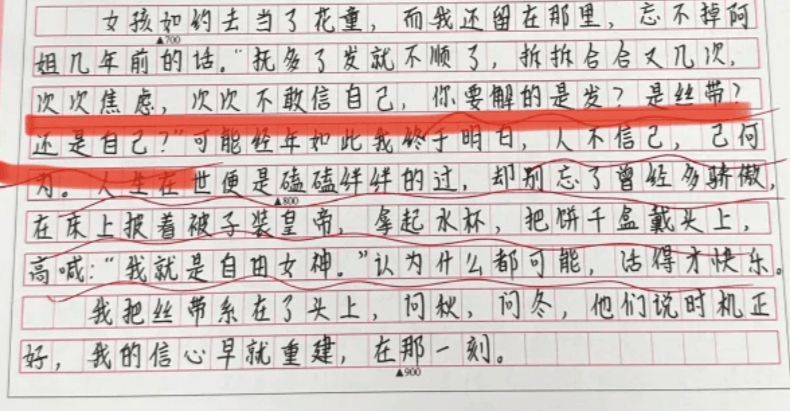 女孩如约去当了花童，而我还留在那里，忘不掉阿
▲700
姐几年前的话。“抚多了发就不顺了，拆拆合合又几次，
次次焦虑，次次不敢信自己，你要解的是发？是丝带？
还是自己？”可能经年如此我终于明白，人不信己，己何
为。人生在世便是磕磕绊绊的过，却别忘了曾经多骄傲，
▲800
在床上披着被子装皇帝，拿起水杯，把饼干盒戴头上，
高喊：“我就是自由女神。”认为什么都可能，活得才快乐。
我把丝带系在了头上，问秋，问冬，他们说时机正
好，我的信心早就重建，在那一刻。
▲900